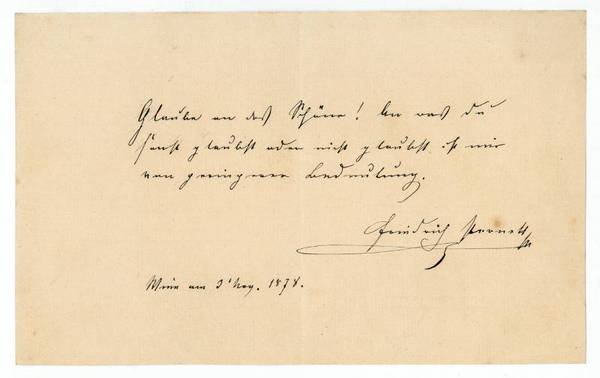 Glaube an das Schöne! An was du
sonst glaubst oder nicht glaubst, ist mir
von geringerer Bedeutung.
Friedrich
Wien am 3. 1878.